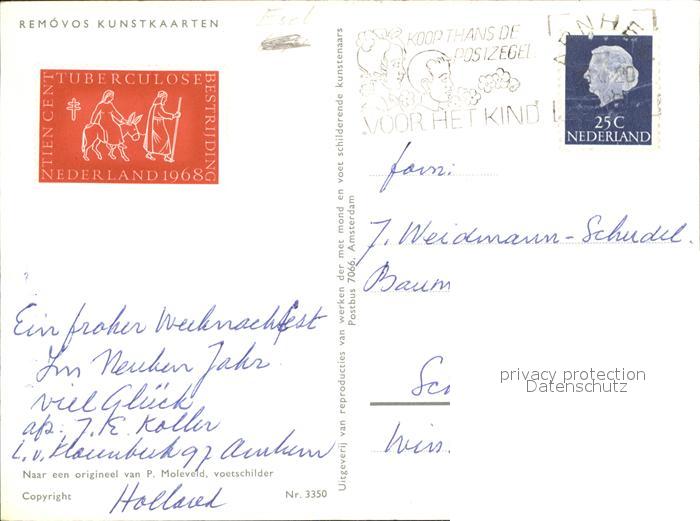 REMÓVOS KUNSTKAARTEN
Esel
TIEN CENT
TUBERCULOSE
BESTRIJDING
NEDERLAND 1968
KOOP THANS DE
POSTZEGEL
VOOR HET KIND
ARNHE
25 C
NEDERLAND
Uitgeverij van reproducties van werken der met mond en voet schilderende kunstenaars
Postbus 7066, Amsterdam
Fam:
J. Weidmann-Schudel.
Baum
Sc
Win
privacy protection
Datenschutz
Ein froher Weihnachtfest
Im Neuben Jahr
viel Glück
J. E. Koller
97 Arnhem
Holland
Naar een origineel van P. Moleveld, voetschilder
Copyright
Nr. 3350